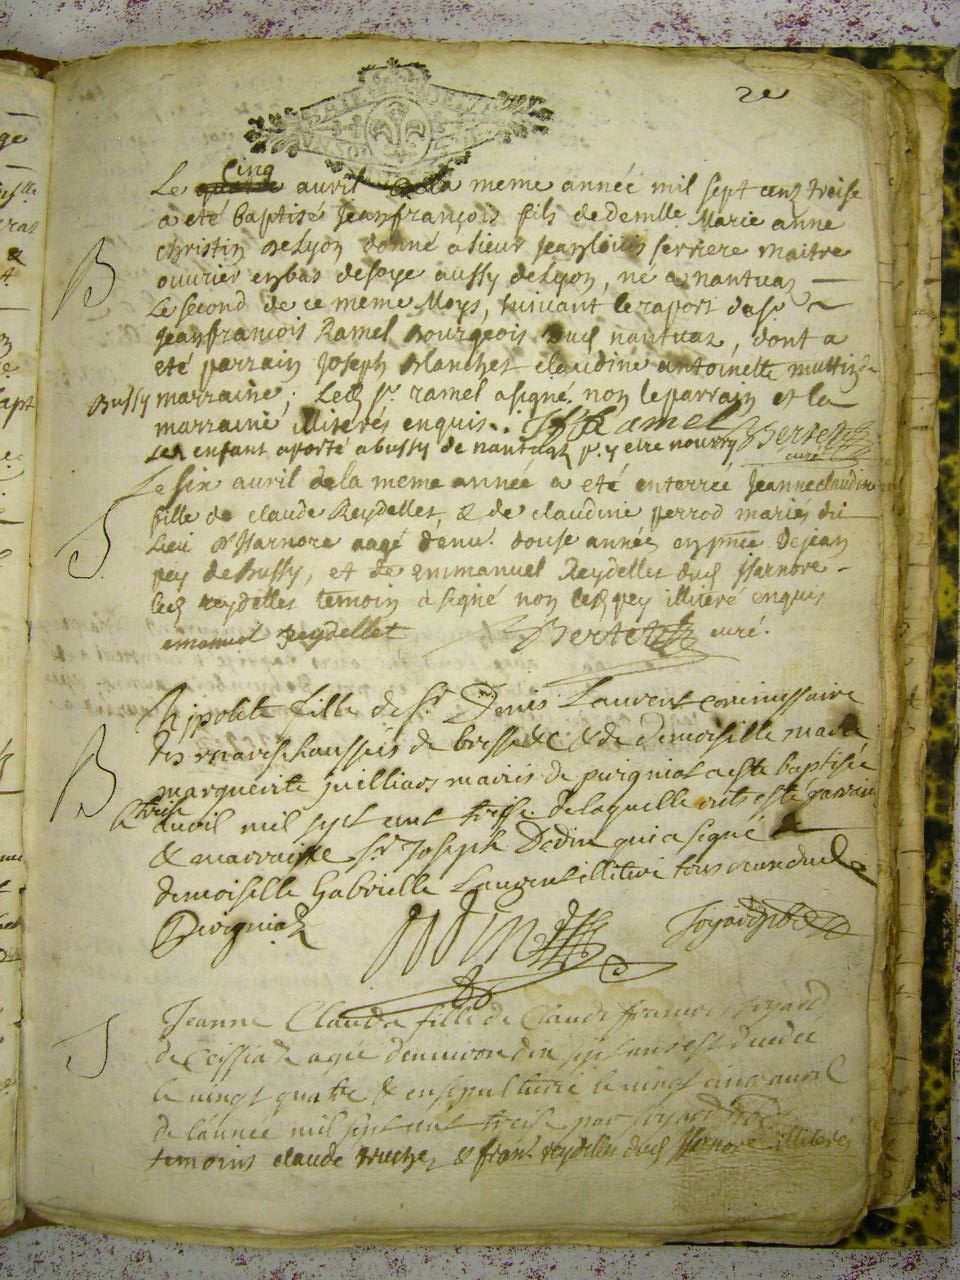 2e
Cinq
Le avril de la meme année mil sept cens treise
a été baptisé Jeanfrançois fils de demlle Marie anne
christin de Lyon donné a sieur Jeanlouis ferriere maitre
ouvrier en bas de soye aussy de Lyon, né a nantuaz
Le second de ce meme Moys, suivant le raport de sr
Jeanfrancois Ramel bourgeois dud nantuaz, dont a
été parrain Joseph blanchet claudine antoinette muttin de
Bussy marraine; Led sr. ramel a signé non le parrain et la
marraine illiterés enquis. Jf Ramel Bertet
Led enfant apporté a bussy de nantuaz pr. y etre nourry curé
Le six avril de la meme année a été enterrée Jeanneclaudine
fille de claude Reydellet, & de claudine perrod mariés du
Lieu d'Isarnore aagé d'env. douse années en pnce de Jean
pey de Bussy, et de Emmanuel Reydellet dud Isarnore
led reydellet temoin a signé non led pey illiteré enquis
emanuel Reydellet Bertet curé.
B
S
B
hipolite fille de Sr. Denis Laurent commissaire
des marechaussées de bresse & & de demoiselle marie
marguerite Juilliard mariés de pirigniat a esté baptisée
le treise avril mil sept cent treise de laquelle ont esté parrain
& marraine sr Joseph Dedin qui a signé &
demoiselle Gabrielle Laurent illiteré tous deux dud
Pirigniat
S
Jeanne Clauda fille de Claude françois Goyard
de Ceissia agée d'environ dix sept ans est decedee
le vingt quatre & ensepulturée le vingt cinq avril
de l'année mil sept cent treise par
temoins claude truche, & fran. reydellet dud Isarnore illiterés